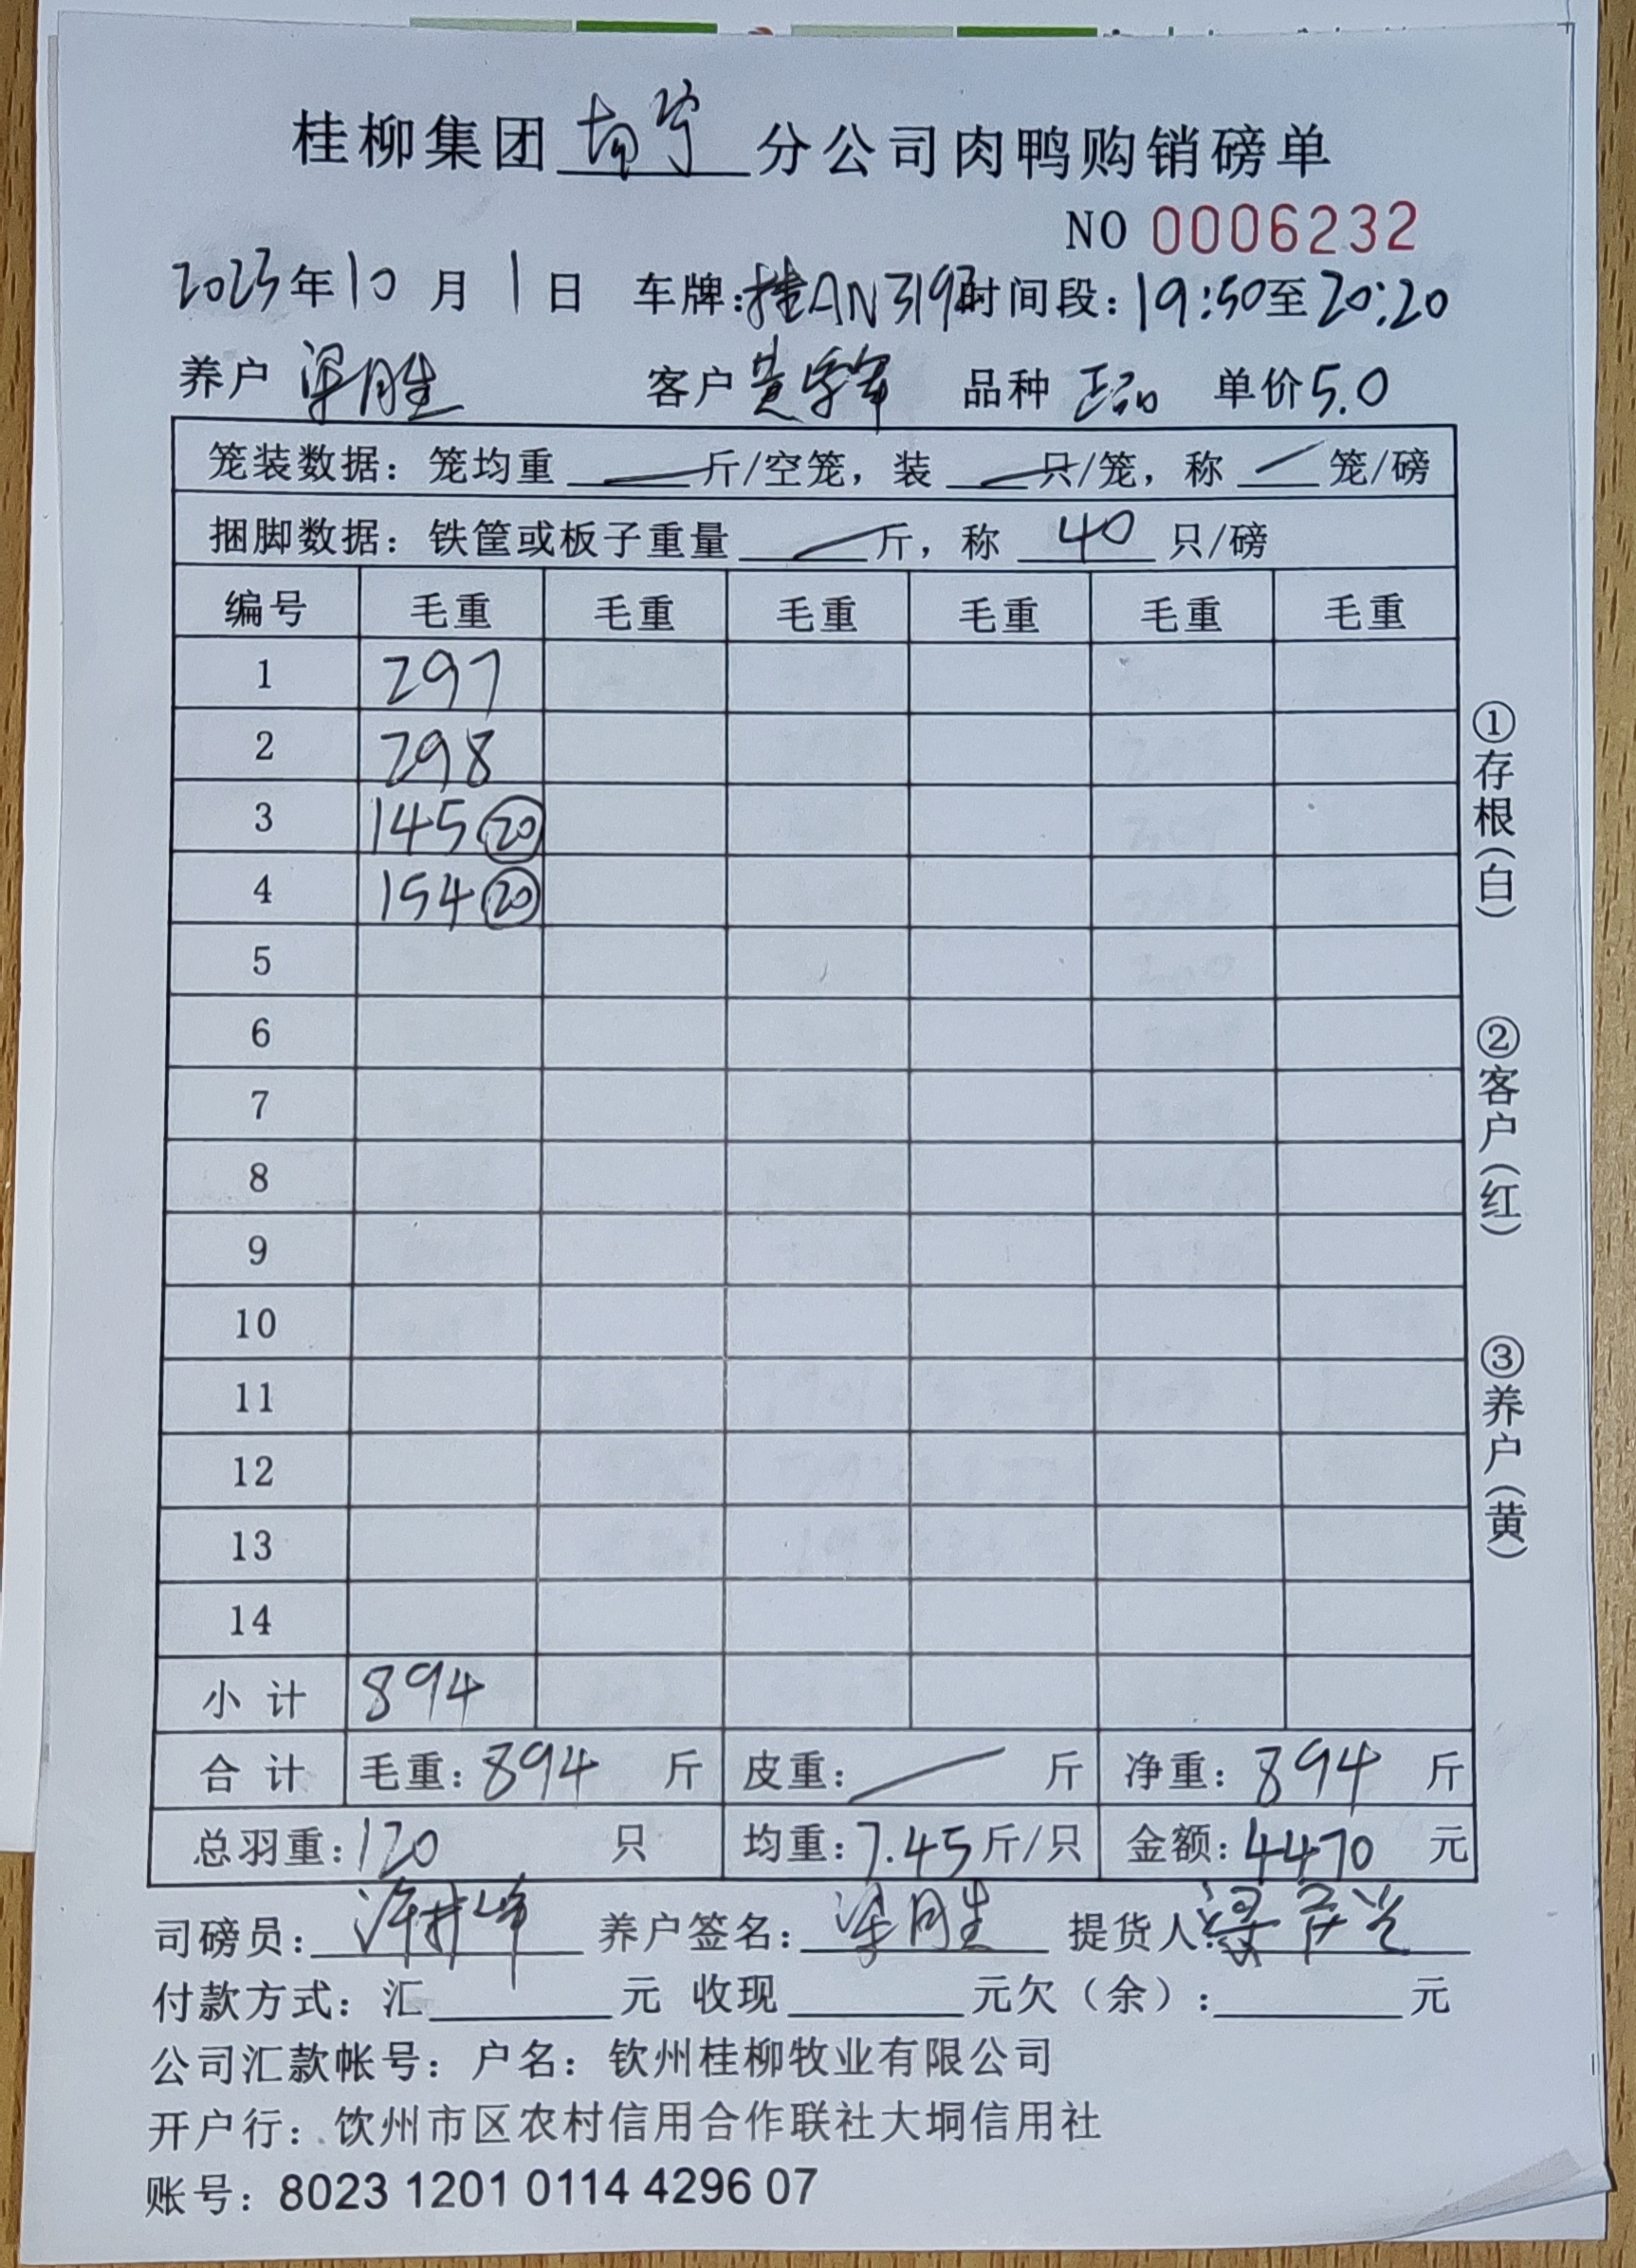 桂柳集团南宁分公司肉鸭购销磅单
NO 0006232
2023年10月1日 车牌:桂AN319 时间段:19:50至20:20
养户 梁月生 客户 黄 品种 正品 单价5.0
笼装数据：笼均重 斤/空笼，装 只/笼，称 笼/磅
捆脚数据：铁筐或板子重量 斤，称 40 只/磅
编号 毛重 毛重 毛重 毛重 毛重 毛重
1 297
2 298
3 145 ⑳
4 154 ⑳
5
6
7
8
9
10
11
12
13
14
小计 894
合计 毛重:894 斤 皮重: 斤 净重:894 斤
总羽重:120 只 均重:7.45斤/只 金额:4470 元
司磅员: 许 峰 养户签名: 梁月生 提货人:梁
付款方式：汇 元 收现 元欠（余）: 元
公司汇款帐号：户名：钦州桂柳牧业有限公司
开户行：钦州市区农村信用合作联社大垌信用社
账号：8023 1201 0114 4296 07
①存根（白）
②客户（红）
③养户（黄）